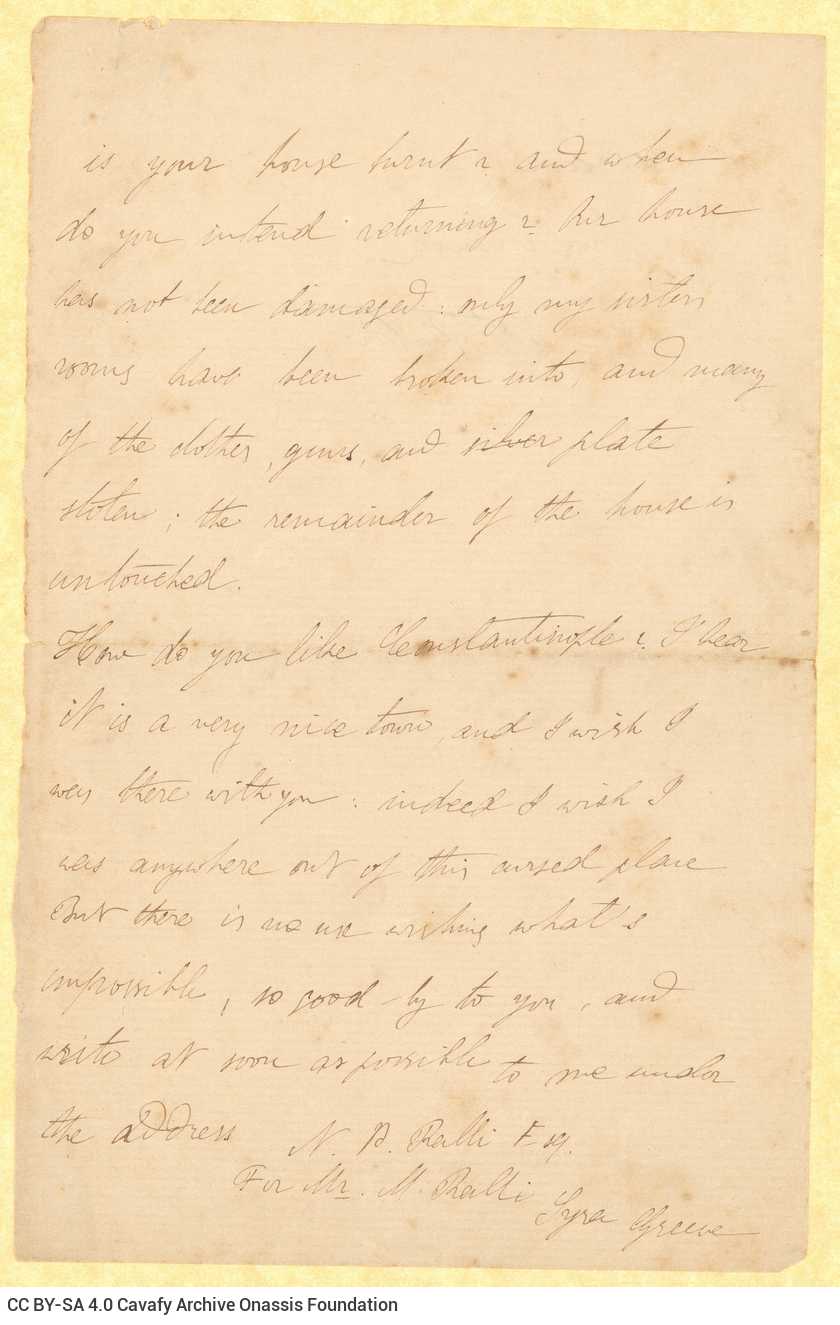 is your house burnt? and when
do you intend returning? Our house
has not been damaged: only my sisters
rooms have been broken into, and many
of the clothes, guns, and silver plate
stolen; the remainder of the house is
untouched.
How do you like Constantinople? I hear
it is a very nice town, and I wish I
was there with you: indeed I wish I
was anywhere out of this cursed place
But there is no use wishing what's
impossible, so good-by to you, and
write at soon as possible to me under
the address N. B. Ralli Esq.
For Mr. M. Ralli
Syra Greece
CC BY-SA 4.0 Cavafy Archive Onassis Foundation